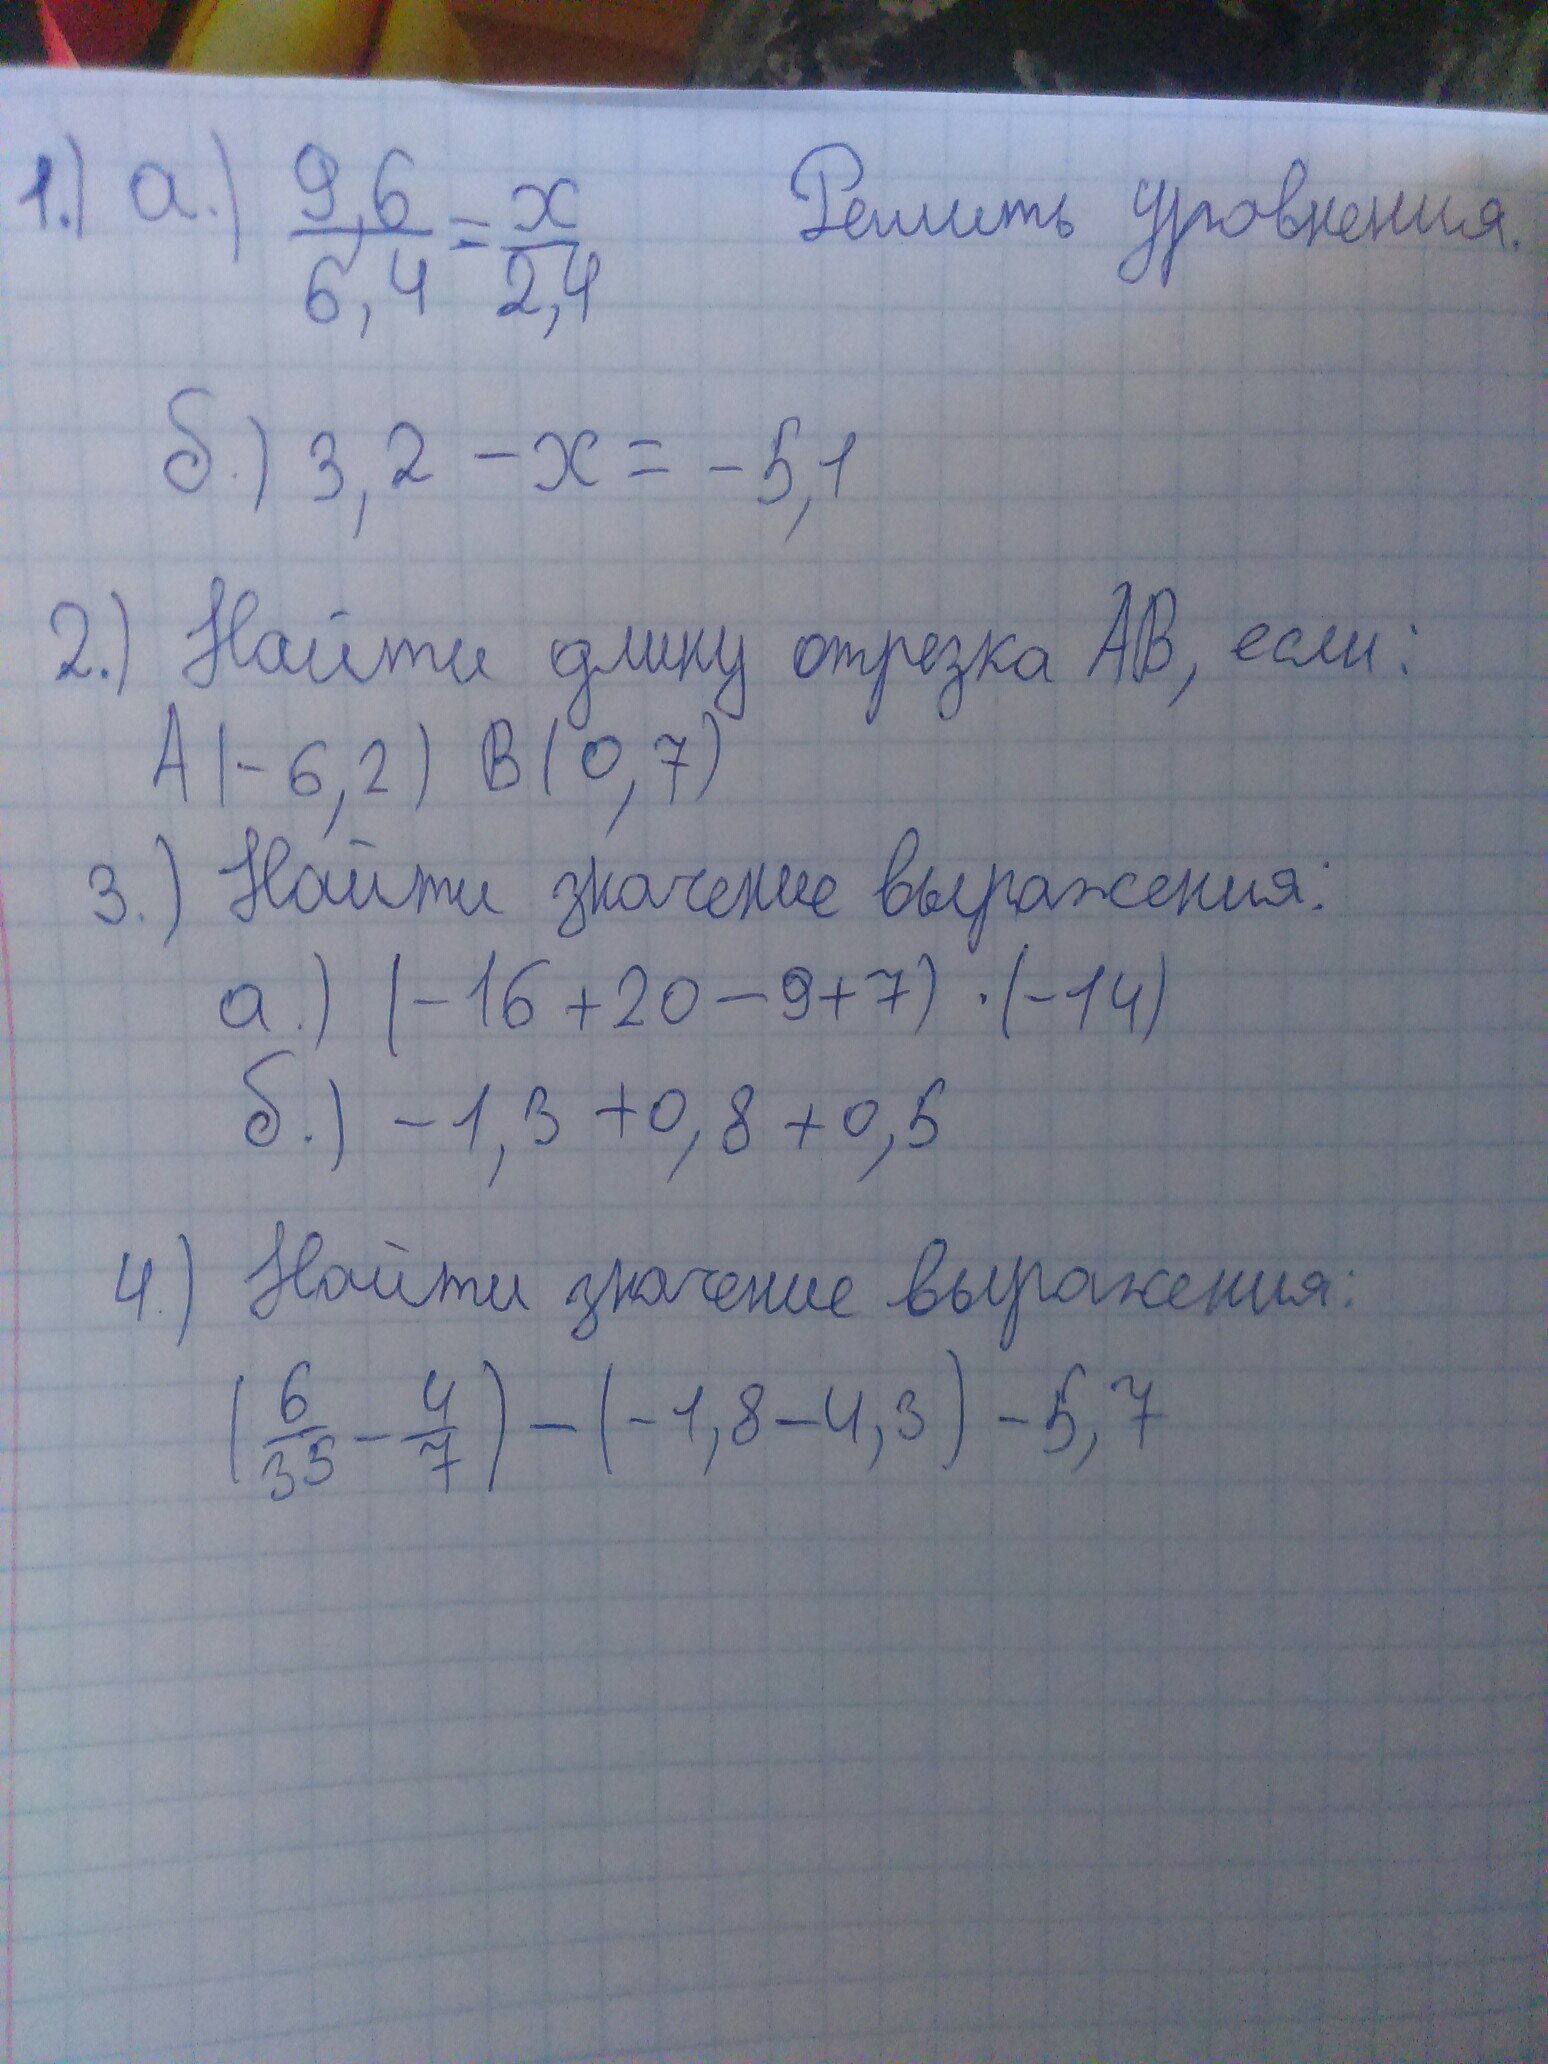 1.) а.) 9,6/6,4 = x/2,4 Решить уровнения.
б.) 3,2 - x = -5,1
2.) Найти длину отрезка AB, если:
A(-6,2) B(0,7)
3.) Найти значение выражения:
а.) (-16+20-9+7)·(-14)
б.) -1,3+0,8+0,5
4.) Найти значение выражения:
(6/35 - 4/7) - (-1,8-4,3) - 5,7